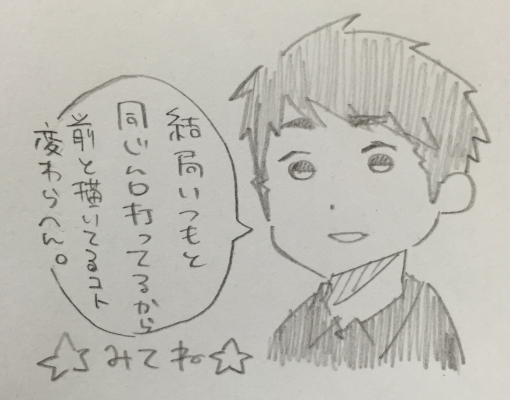 結局いつもと
同じ 打ってるから
前と描いてるコト
変わらへん。
☆みてね☆